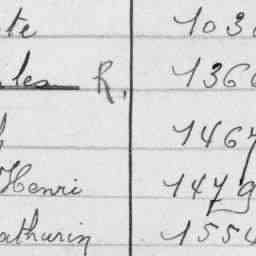 te 103
les R. 136
146
Henri 1479
athurin 155